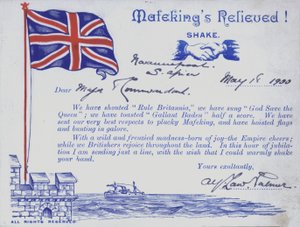 Mafeking's Relieved !
SHAKE.
S. Africa
May 18 1900
Dear Major
We have shouted "Rule Britannia", we have sung "God Save the
Queen"; we have toasted "Gallant Baden" half a score. We have
sent our very best respects to plucky Mafeking, and have hoisted flags
and bunting in galore.
With a wild and frenzied madness—born of joy—the Empire cheers;
while we Britishers rejoice throughout the land. In this hour of jubila-
tion I am sending just a line, with the wish that I could warmly shake
your hand.
Yours exultantly,
ALL RIGHTS RESERVED